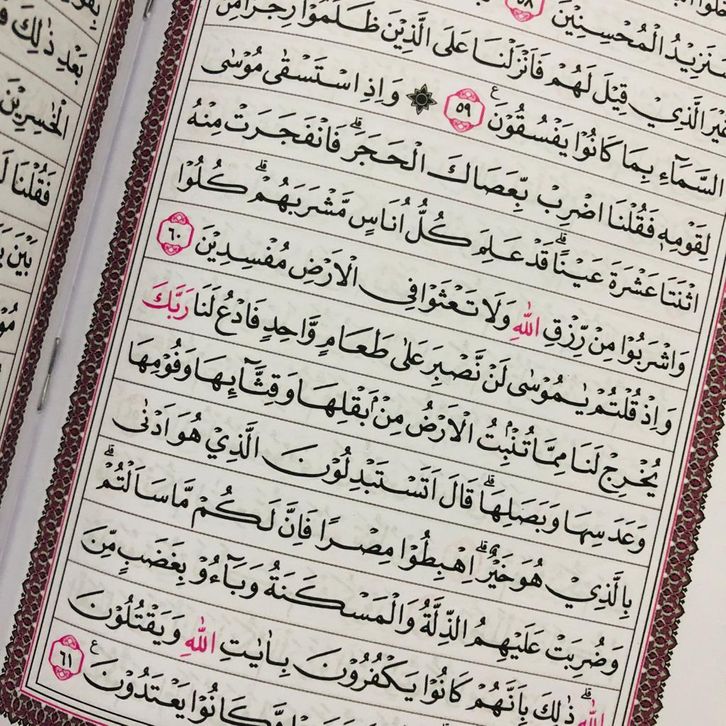 سَنَزِيْدُ الْمُحْسِنِيْنَ ٥٨
غَيْرَ الَّذِي قِيْلَ لَهُمْ فَاَنْزَلْنَا عَلَى الَّذِيْنَ ظَلَمُوْا رِجْزًا مِّنَ
السَّمَآءِ بِمَا كَانُوْا يَفْسُقُوْنَ ٥٩ ۞ وَاِذِ اسْتَسْقٰى مُوْسٰى
لِقَوْمِهٖ فَقُلْنَا اضْرِبْ بِّعَصَاكَ الْحَجَرَؕ فَانْفَجَرَتْ مِنْهُ
اثْنَتَا عَشْرَةَ عَيْنًاؕ قَدْ عَلِمَ كُلُّ اُنَاسٍ مَّشْرَبَهُمْؕ كُلُوْا
وَاشْرَبُوْا مِنْ رِّزْقِ اللّٰهِ وَلَا تَعْثَوْا فِي الْاَرْضِ مُفْسِدِيْنَ ٦٠
وَاِذْ قُلْتُمْ يٰمُوْسٰى لَنْ نَّصْبِرَ عَلٰى طَعَامٍ وَّاحِدٍ فَادْعُ لَنَا رَبَّكَ
يُخْرِجْ لَنَا مِمَّا تُنْۢبِتُ الْاَرْضُ مِنْۢ بَقْلِهَا وَقِثَّآئِهَا وَفُوْمِهَا
وَعَدَسِهَا وَبَصَلِهَاؕ قَالَ اَتَسْتَبْدِلُوْنَ الَّذِي هُوَ اَدْنٰى
بِالَّذِيْ هُوَ خَيْرٌؕ اِهْبِطُوْا مِصْرًا فَاِنَّ لَكُمْ مَّا سَاَلْتُمْؕ
وَضُرِبَتْ عَلَيْهِمُ الذِّلَّةُ وَالْمَسْكَنَةُ وَبَآءُوْ بِغَضَبٍ مِّنَ
اللّٰهِؕ ذٰلِكَ بِاَنَّهُمْ كَانُوْا يَكْفُرُوْنَ بِاٰيٰتِ اللّٰهِ وَيَقْتُلُوْنَ
وَّكَانُوْا يَعْتَدُوْنَ ٦١
بَعْدِ ذٰلِكَ
الْخٰسِرِيْنَ
فَقُلْنَا
بَيْنَ